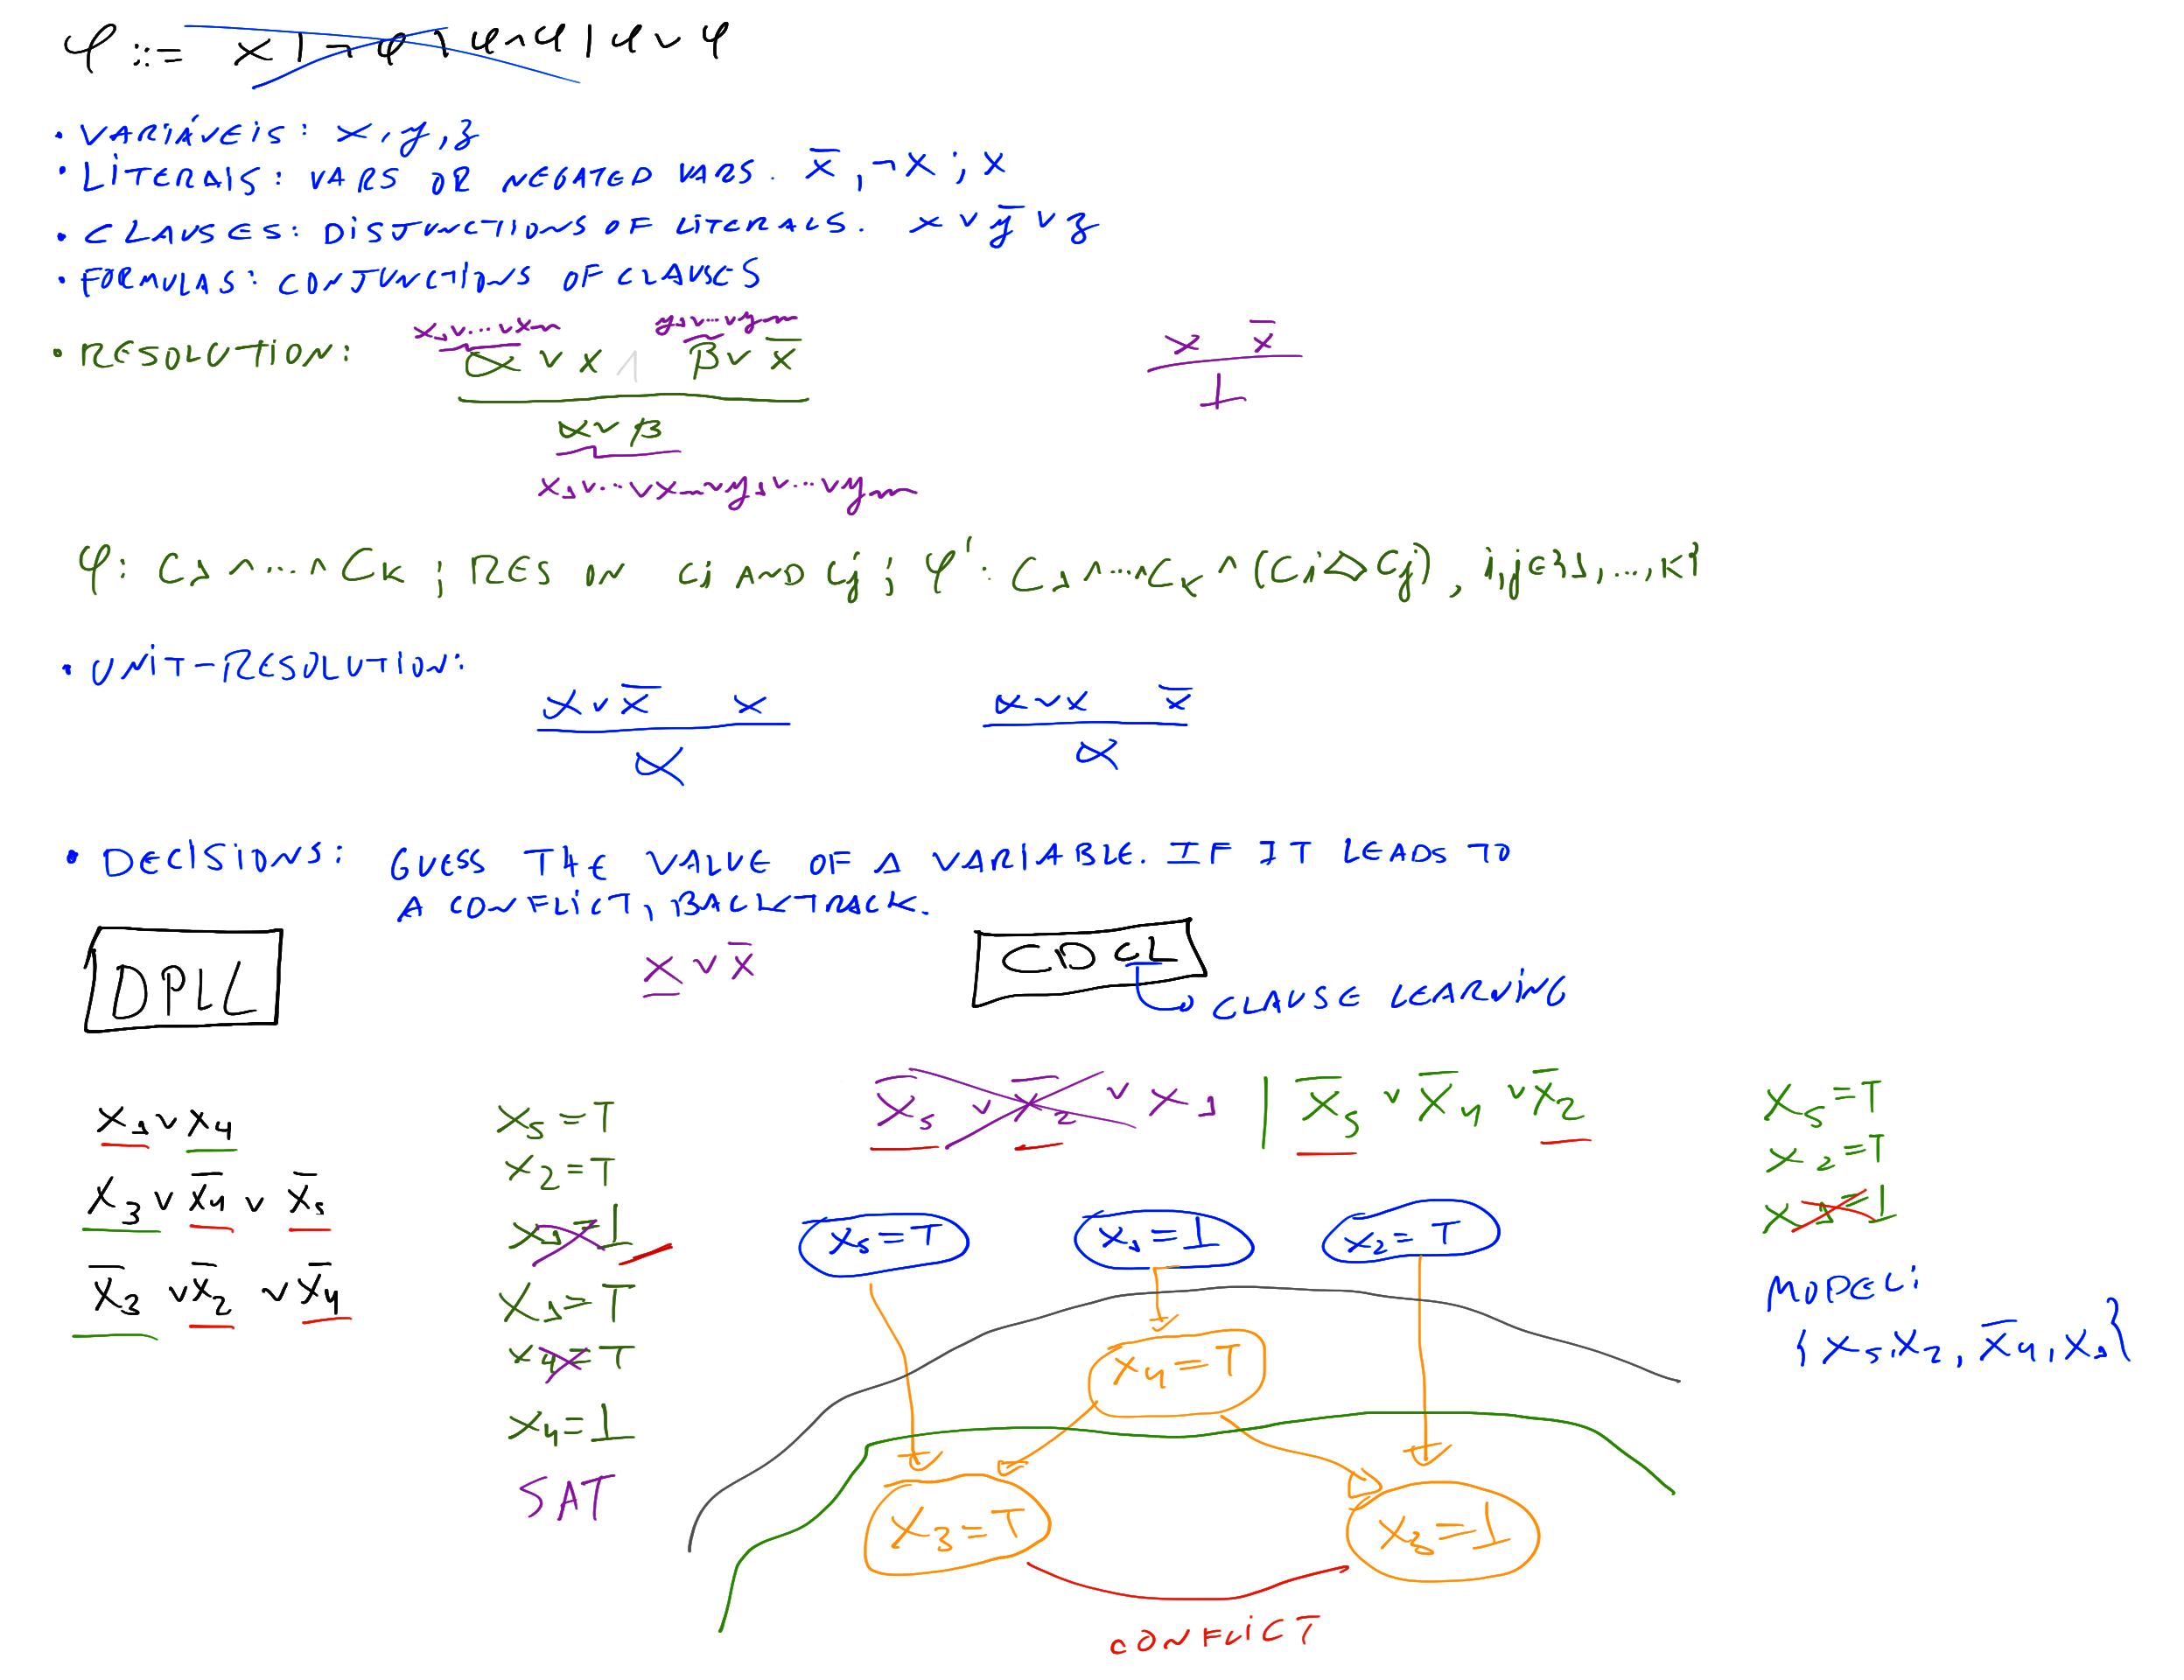 φ ::= x | ¬φ | φ ∧ φ | φ ∨ φ
• VARIÁVEIS: x, y, z
• LITERAIS: VARS OR NEGATED VARS. x̅, ¬x ; x
• CLAUSES: DISJUNCTIONS OF LITERALS. x ∨ y̅ ∨ z
• FORMULAS: CONJUNCTIONS OF CLAUSES
x₁∨...∨xₙ y₁∨...∨yₘ
• RESOLUTION: α ∨ x ∧ β ∨ x̅
α ∨ β
x₁∨...∨xₙ∨y₁∨...∨yₘ
x x̅
⊥
φ: C₁ ∧ ... ∧ Cₖ ; RES ON Ci AND Cj ; φ': C₁ ∧ ... Cₖ ∧ (Ci ◇ Cj), i,j ∈ {1, ..., k}
• UNIT-RESOLUTION:
α ∨ x̅ x
α
α ∨ x x̅
α
• DECISIONS: GUESS THE VALUE OF A VARIABLE. IF IT LEADS TO
A CONFLICT, BACKTRACK.
DPLL
x ∨ x̅
CDCL
CLAUSE LEARNING
x₁ ∨ x₄
x₃ ∨ x̅₄ ∨ x̅₅
x̅₃ ∨ x̅₂ ∨ x̅₄
x₅ = T
x₂ = T
x₁ = ⊥
x₁ = T
x₄ = T
x₄ = ⊥
SAT
x̅₅ ∨ x̅₂ ∨ x₁ | x̅₅ ∨ x̅₄ ∨ x̅₂
x₅ = T
x₁ = ⊥
x₂ = T
x₄ = T
x₃ = T
x₃ = ⊥
CONFLICT
x₅ = T
x₂ = T
x₁ = ⊥
MODEL:
{x₅, x₂, x̅₄, x₁}